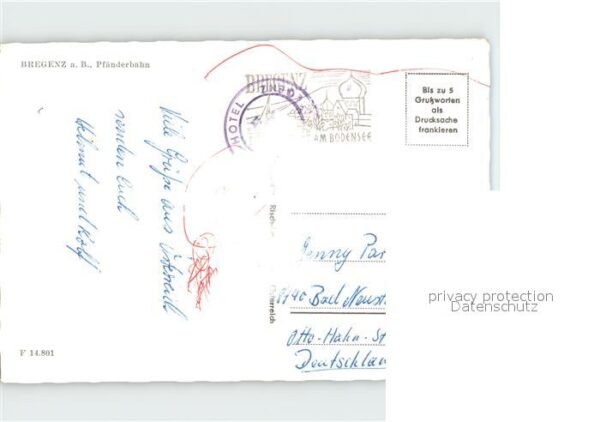 BREGENZ a. B., Pfänderbahn
BREGENZ
HOTEL
AM BODENSEE
Bis zu 5
Grußworten
als
Drucksache
frankieren
Viele Grüße aus Österreich
senden Euch
Helmut und Rolf
Jenny Par
Bad Neust
Otto-Hahn-St
Deutschlan
Österreich
F 14.801
privacy protection
Datenschutz